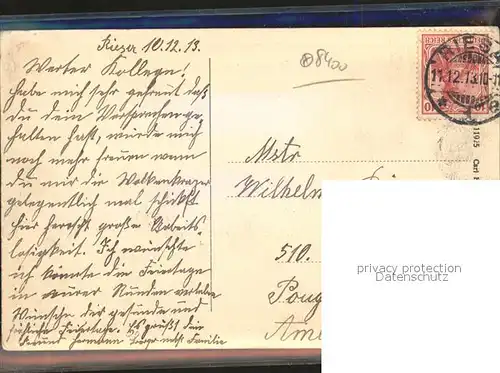 Riesa 10.12.13.
Werter Kollege!
habe mich sehr gefreut daß
du dein Versprechen ge-
halten hast, würde mich
noch mehr freuen wenn
du mir die Wolkenkrazer
gelegentlich mal schickst
hier herrscht große Arbeits
losigkeit. Ich wünschte
ich könnte die Feiertage
in eurer Runden verleben
Wünsche dir gesunde und
fröhliche Feiertage. Es grüßt dein
Freund Hermann nebst Familie
8400
RIESA
11.12.13.10-11
10
REICH
Mstr
Wilhelm
510.
Poug
Ame
privacy protection
Datenschutz